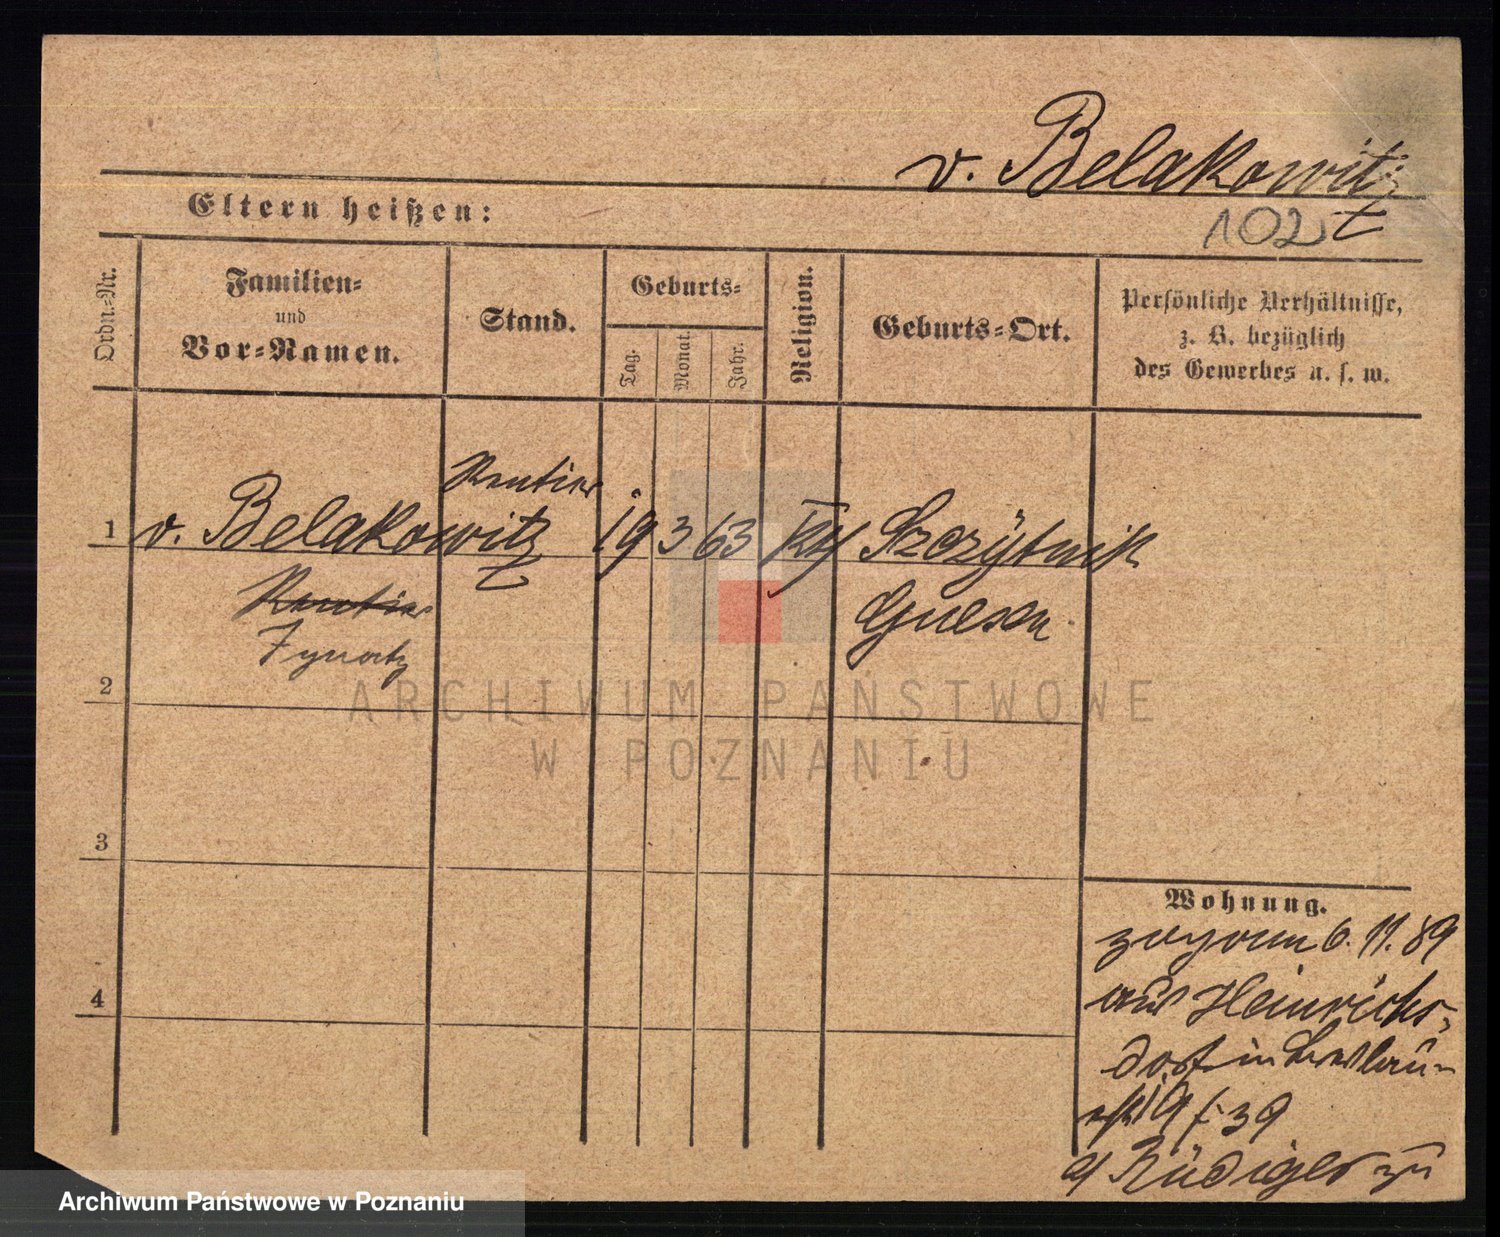 v. Belakowitz
Eltern heißen:
102
Ordn.=Nr.
Familien=
und
Vor=Namen.
Stand.
Geburts=
Tag.
Monat.
Jahr.
Religion.
Geburts=Ort.
Persönliche Verhältnisse,
z. B. bezüglich
des Gewerbes u. s. w.
Rentier
1 v. Belakowitz 19 3 63 Kth Szczytnik
Rentier
Gnesen
Ignatz
2
3
4
Wohnung.
zugezogen 6. 11. 89
aus Heinrichs-
dorf in
19 39
Rüdiger
ARCHIWUM PAŃSTWOWE
W POZNANIU
Archiwum Państwowe w Poznaniu